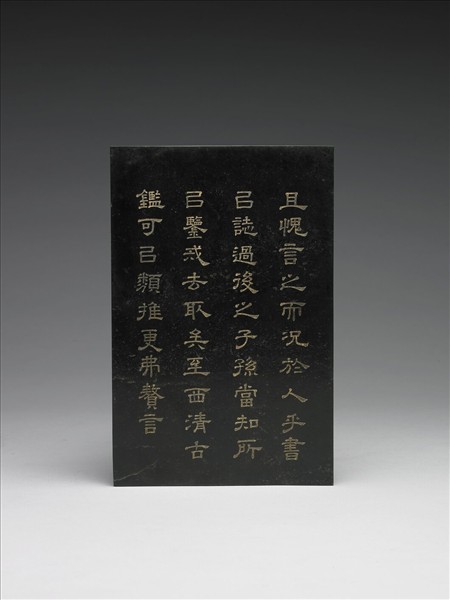 且愧言之而況於人乎書
㠯誌過後之子孫當知所
㠯鑒戒去取矣至西清古
鑑可㠯類推更弗贅言